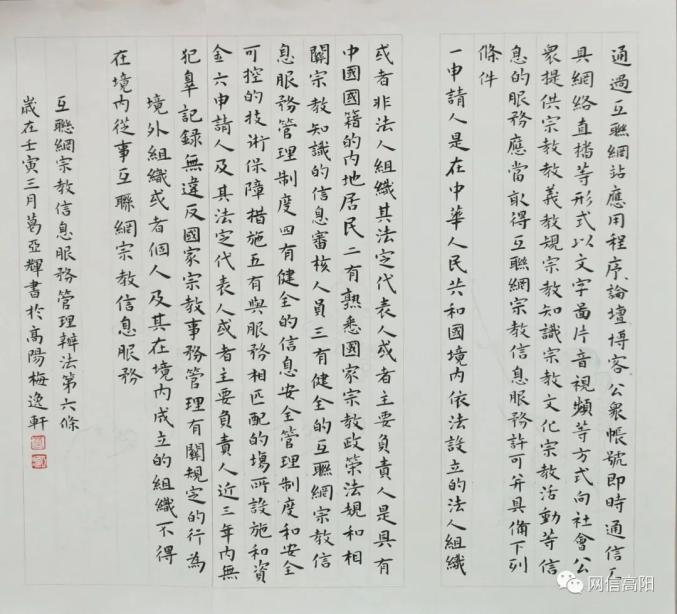 通過互聯網站應用程序論壇博客公衆帳號即時通信工
具網絡直播等形式以文字圖片音視頻等方式向社會公
衆提供宗教教義教規宗教知識宗教文化宗教活動等信
息的服務應當取得互聯網宗教信息服務許可并具備下列
條件
一申請人是在中華人民共和國境内依法設立的法人組織
或者非法人組織其法定代表人或者主要負責人是具有
中國國籍的内地居民二有熟悉國家宗教政策法規和相
關宗教知識的信息審核人員三有健全的互聯網宗教信
息服務管理制度四有健全的信息安全管理制度和安全
可控的技術保障措施五有與服務相匹配的場所設施和資
金六申請人及其法定代表人或者主要負責人近三年内無
犯辠記録無違反國家宗教事務管理有關規定的行為
境外組織或者個人及其在境内成立的組織不得
在境内從事互聯網宗教信息服務
互聯網宗教信息服務管理辦法第六條
歲在壬寅三月葛亞輝書於高陽梅逸軒
网信高阳